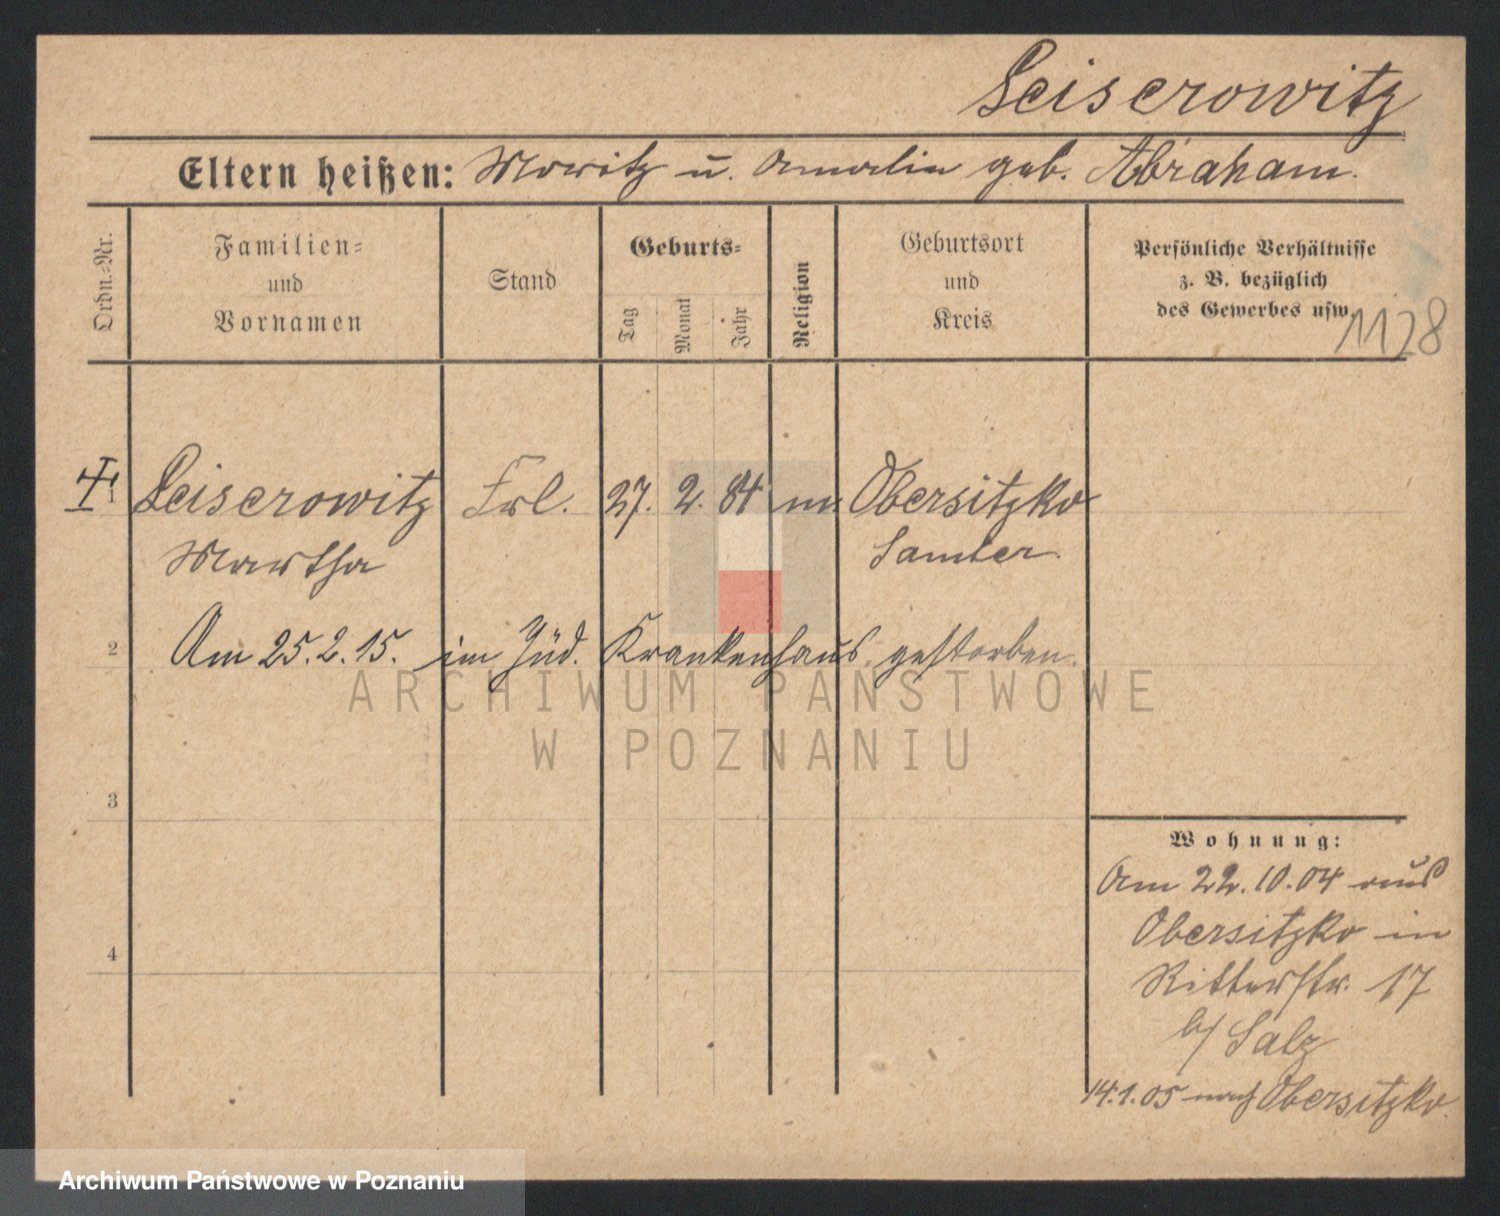 Leiserowitz
Eltern heißen: Moritz u. Amalie geb. Abraham.
Ordn.-Nr.
Familien-
und
Vornamen
Stand
Geburts-
Tag
Monat
Jahr
Religion
Geburtsort
und
Kreis
Persönliche Verhältnisse
z. B. bezüglich
des Gewerbes usw.
1128
1 Leiserowitz Frl. 27. 2. 84 m. Obersitzko
Martha Samter.
2 Am 25.2.15. im Jüd. Krankenhaus gestorben.
3
4
Wohnung:
Am 22.10.04 aus
Obersitzko in
Ritterstr. 17
b/ Salz
14.1.05 nach Obersitzko.
ARCHIWUM PAŃSTWOWE
W POZNANIU
Archiwum Państwowe w Poznaniu